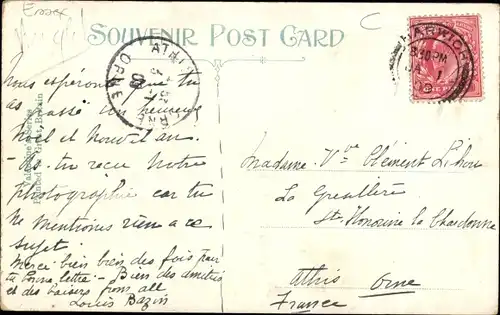 Essex
SOUVENIR POST CARD
HARWICH
8.30 PM
JA 1
Nous espérons que tu
as passé un heureux
Noel et Nouvel an.
as tu reçu notre
photographie car tu
ne mentiones rien a ce
sujet.
Merci bien bien des fois pour
ta bonne lettre - Bien des amitiés
et des baisers from all
Louis Bazin
Madame Vve Clément Lihou
La Greullère
Ste Honorine la Chardonne
Athis Orne
France
ATHIS
ORNE
Printed in Great Britain